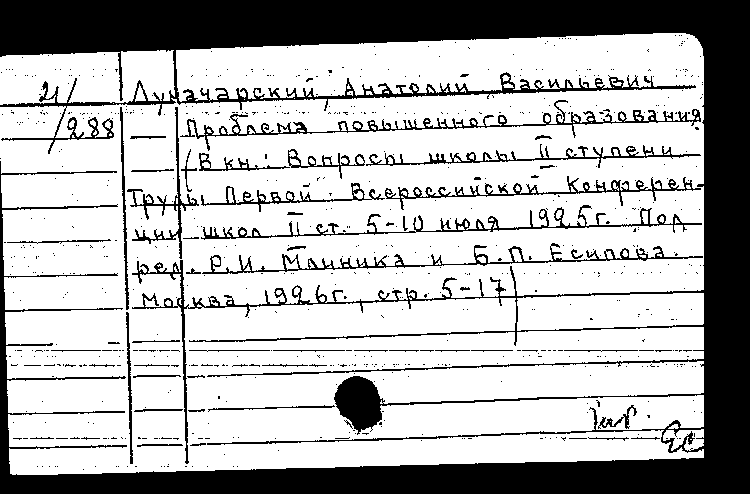 21/288
Луначарский, Анатолий Васильевич
— Проблема повышенного образования
(В кн.: Вопросы школы II ступени.
Труды Первой Всероссийской Конферен-
ции школ II ст. 5-10 июля 1925г. Под
ред. Р.И. Млиника и Б.П. Есипова.
Москва, 1926г., стр. 5-17).